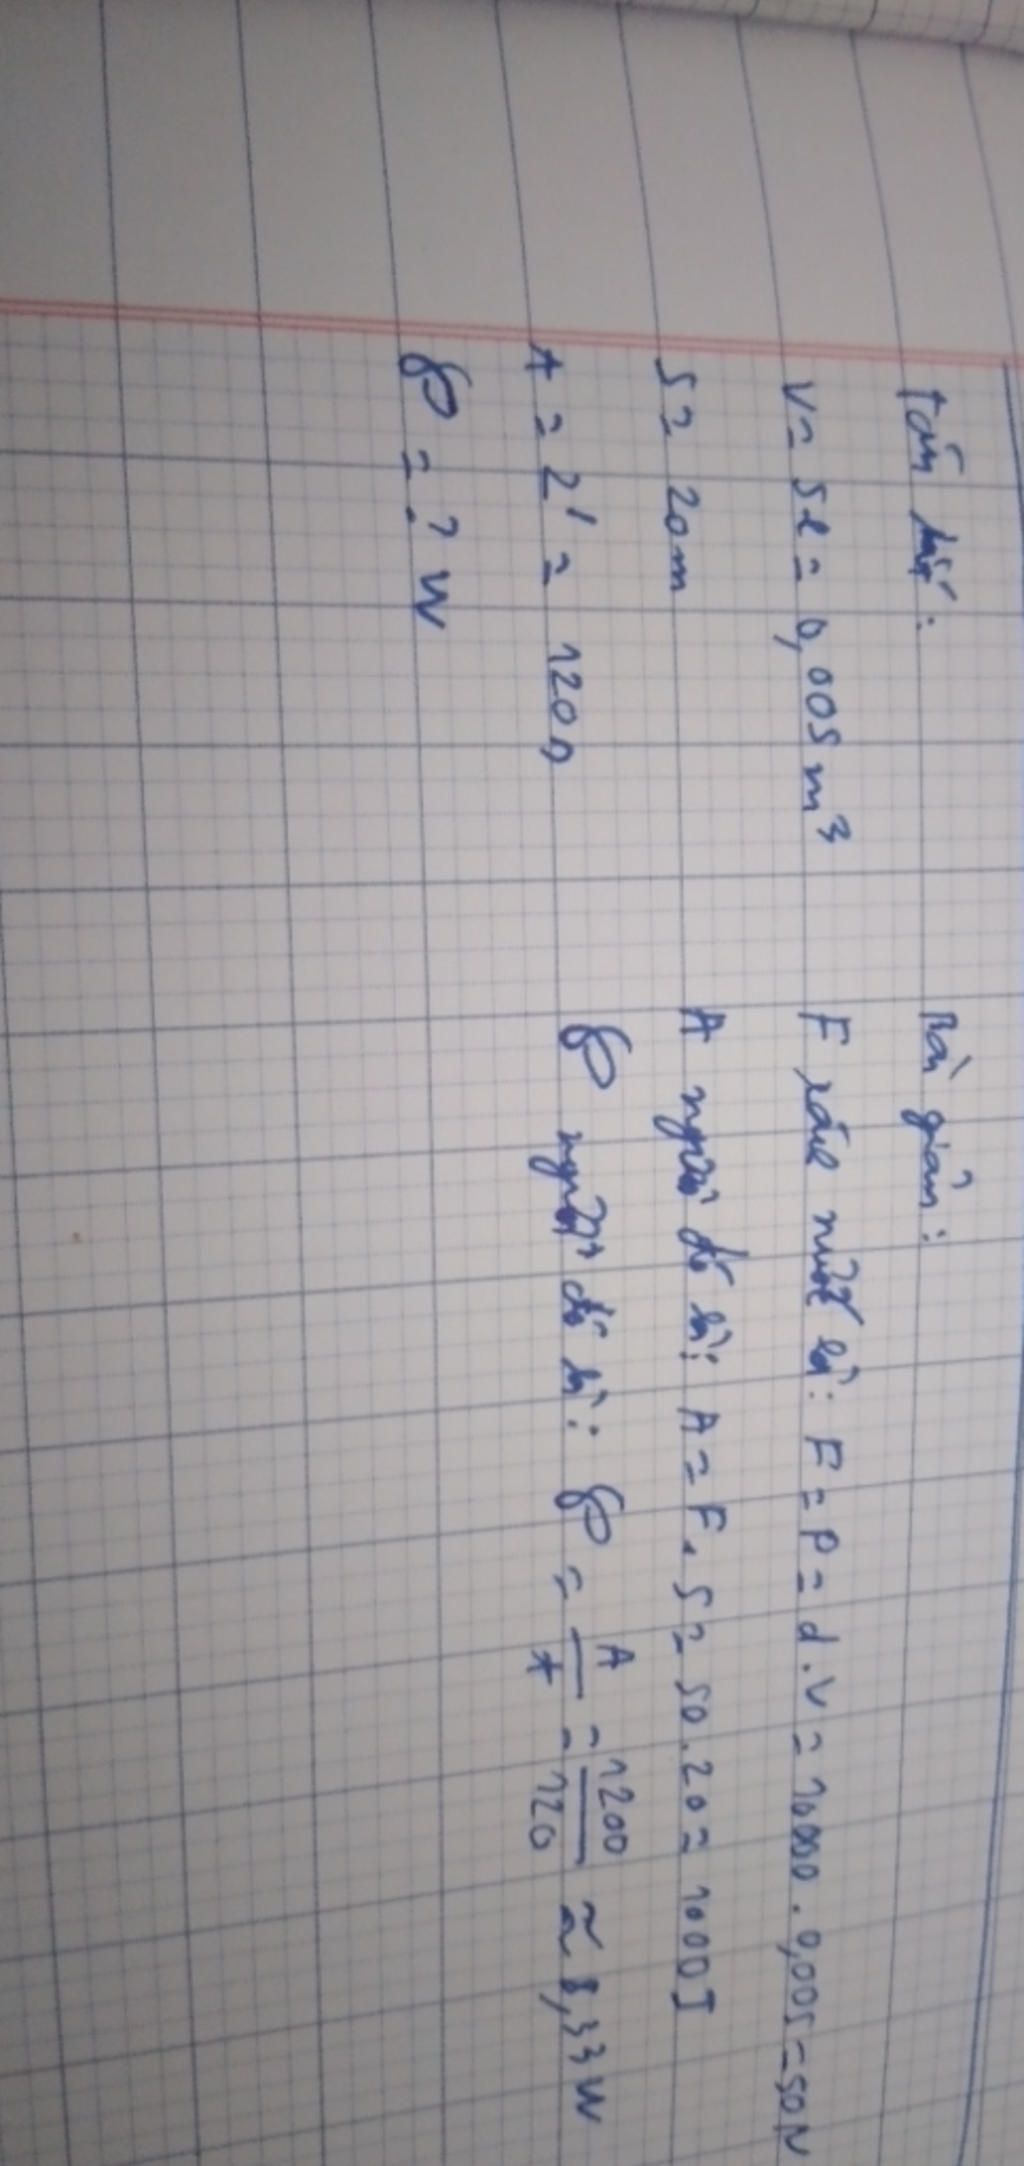 Tóm tắt:
V = 5l = 0,005 m³
S = 20m
t = 2' = 120s
℘ = ? W
Bài giải:
F xách nước là: F = P = d.V = 10000.0,005 = 50N
A người đó là: A = F.S = 50.20 = 1000J
℘ người đó là: ℘ = A/t = 1200/120 ≈ 8,33W